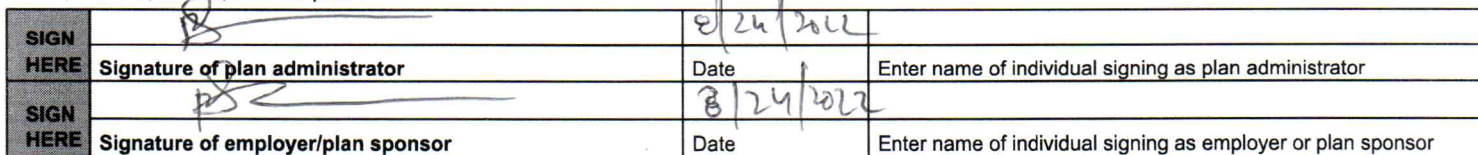 SIGN HERE 8/24/2022
Signature of plan administrator Date Enter name of individual signing as plan administrator
SIGN HERE 8/24/2022
Signature of employer/plan sponsor Date Enter name of individual signing as employer or plan sponsor